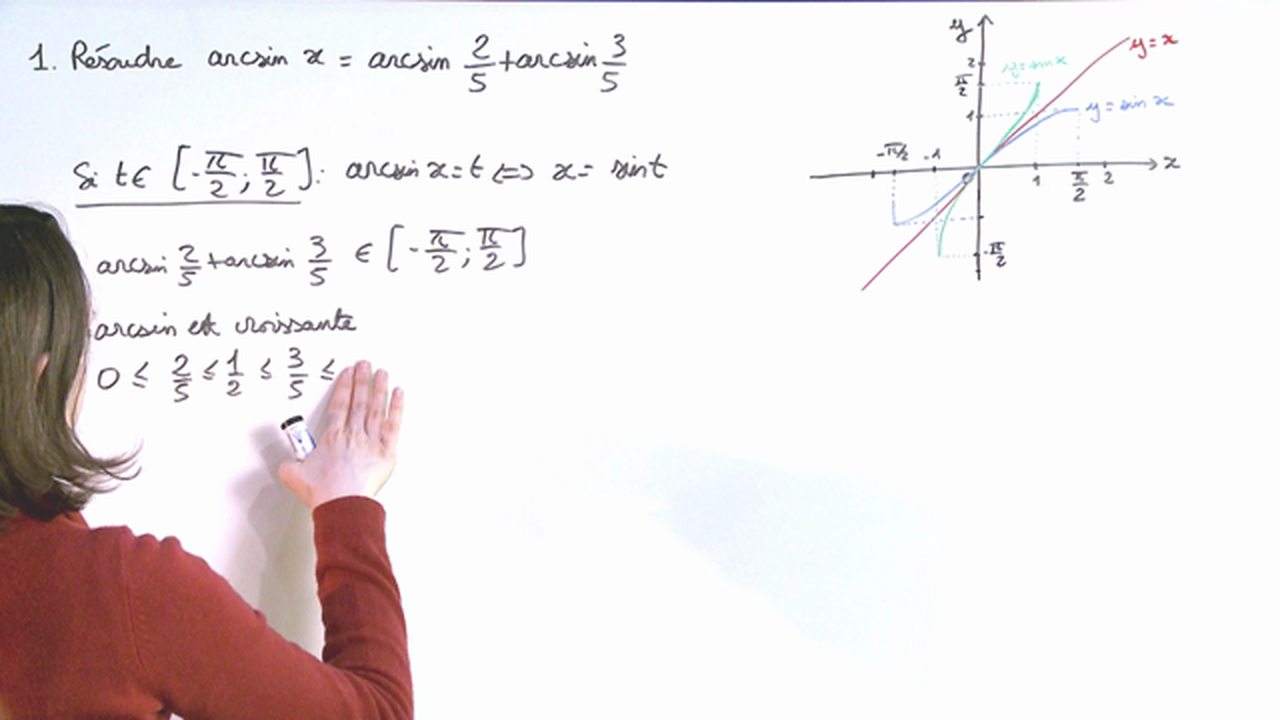 1. Résoudre arcsin x = arcsin 2/5 + arcsin 3/5
Si t ∈ [-π/2 ; π/2] : arcsin x = t ⇔ x = sin t
arcsin 2/5 + arcsin 3/5 ∈ [-π/2 ; π/2]
arcsin est croissante
0 ≤ 2/5 ≤ 1/2 ≤ 3/5 ≤
y
y = x
2
π/2
1
y = sin x
-π/2 -1
0
1 π/2 2
x
-π/2